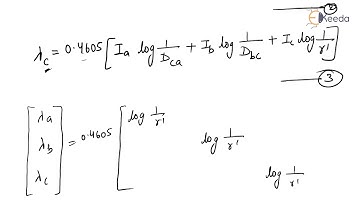 ②
Keeda
λc = 0.4605 [ Ia log 1/Dca + Ib log 1/Dbc + Ic log 1/r' ]
③
[ λa λb λc ] = 0.4605 [ log 1/r'
log 1/r'
log 1/r'